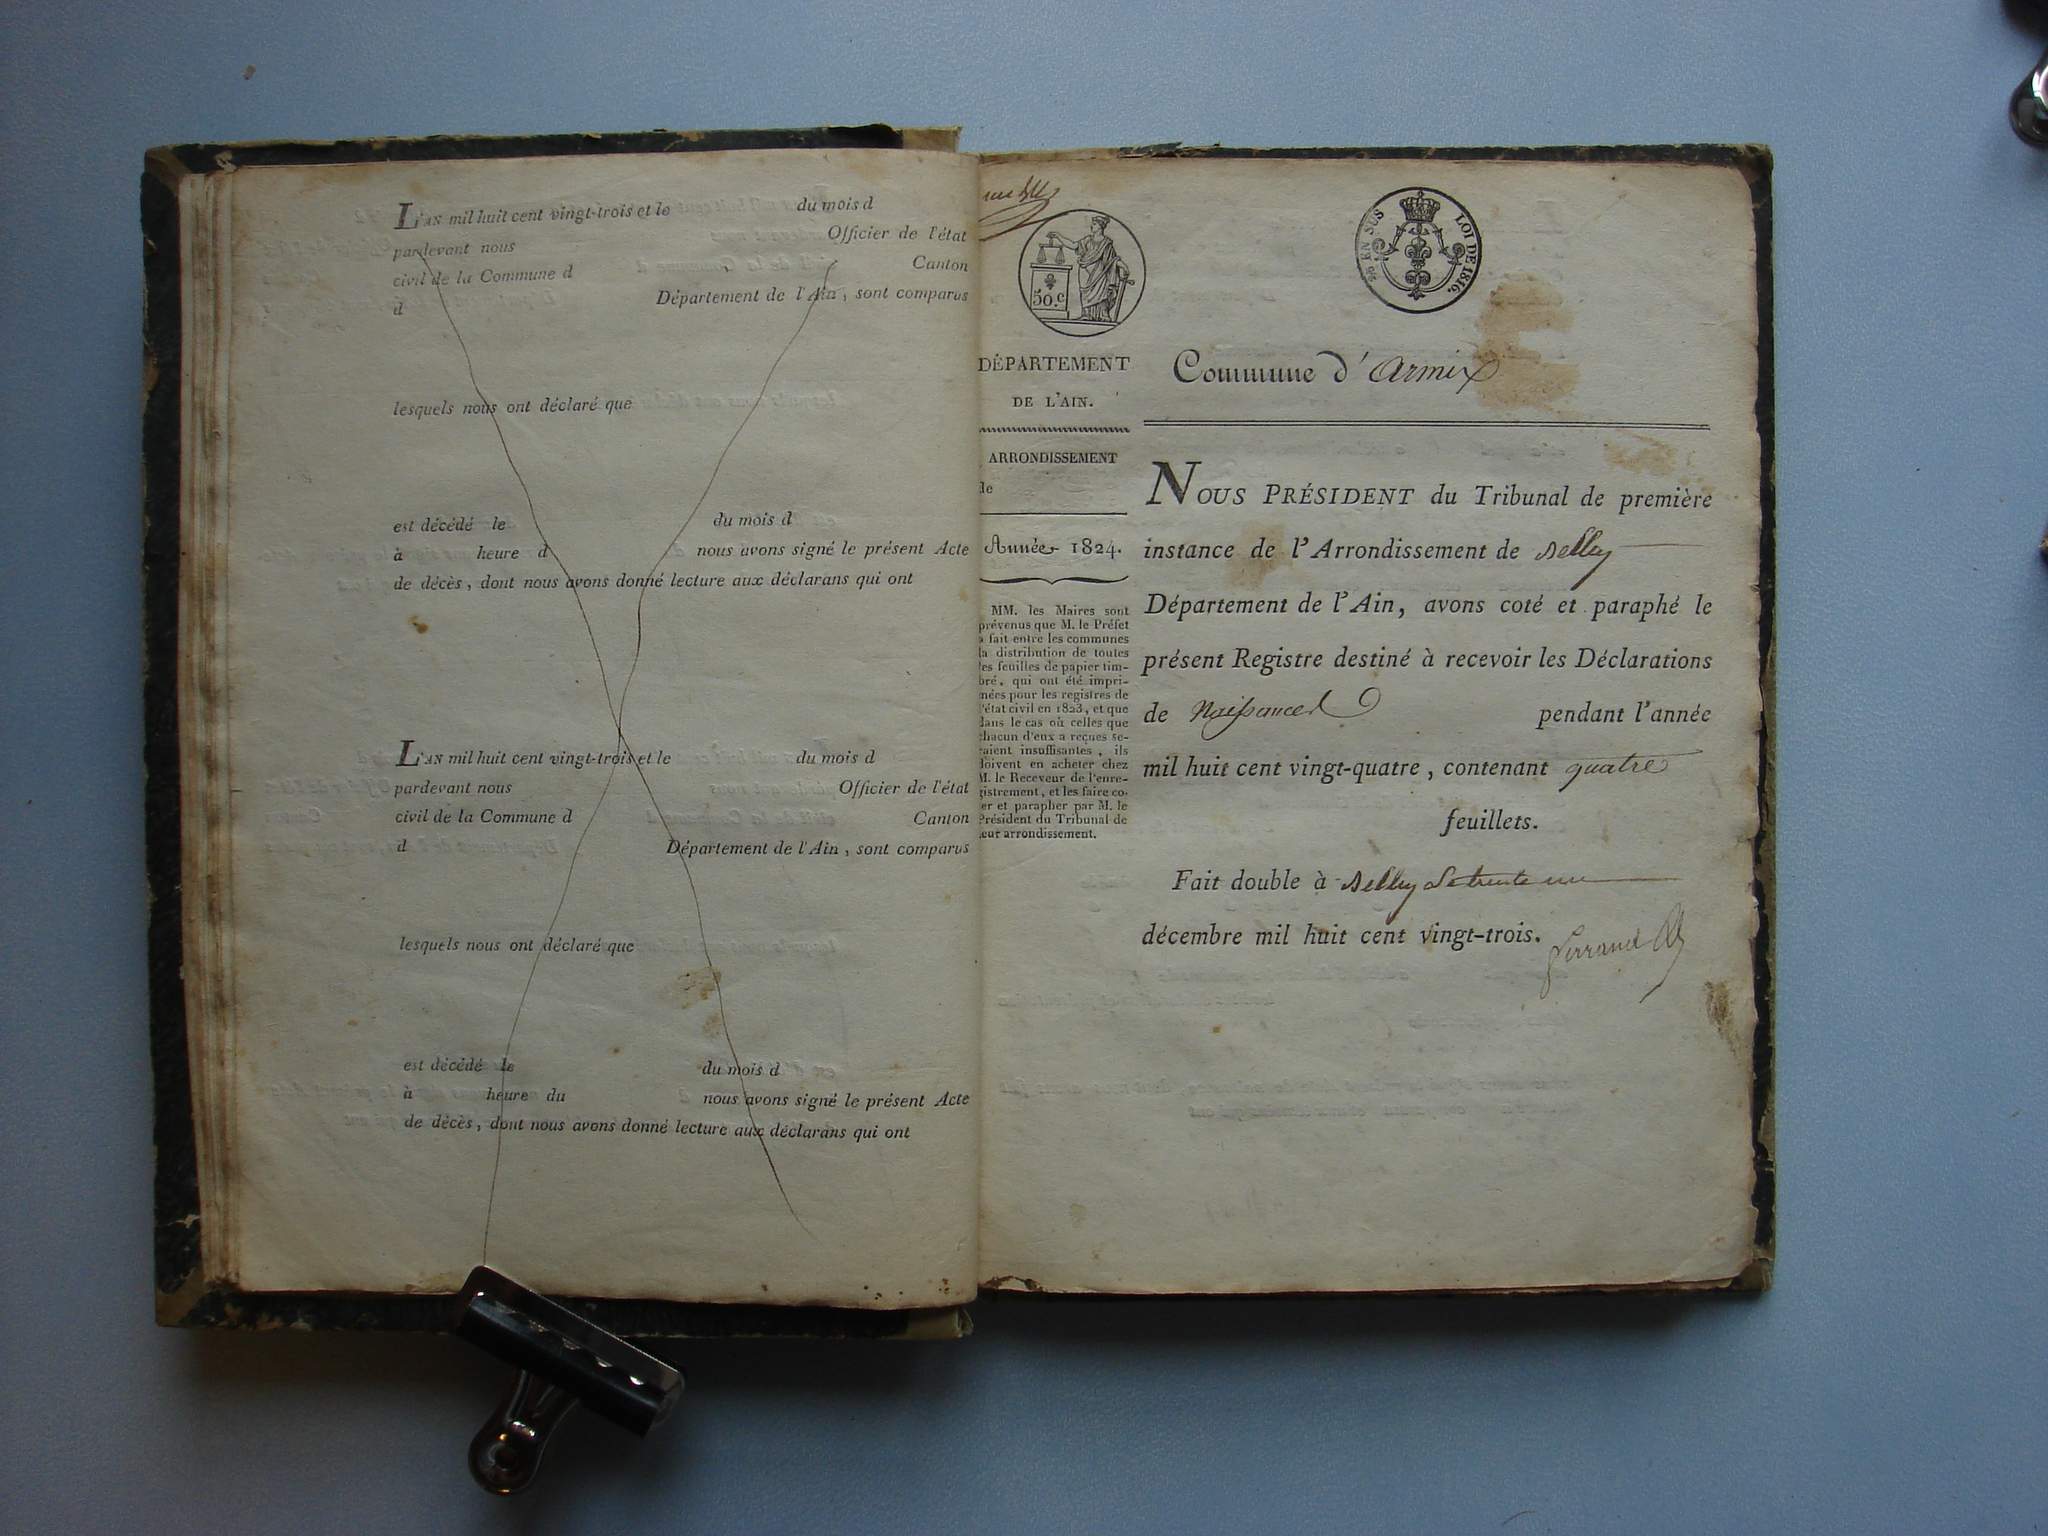 L'AN mil huit cent vingt-trois et le du mois d
pardevant nous Officier de l'état
civil de la Commune d Canton
d Département de l'Ain, sont comparus
lesquels nous ont déclaré que
est décédé le du mois d
à heure d nous avons signé le présent Acte
de décès, dont nous avons donné lecture aux déclarans qui ont
L'AN mil huit cent vingt-trois et le du mois d
pardevant nous Officier de l'état
civil de la Commune d Canton
d Département de l'Ain, sont comparus
lesquels nous ont déclaré que
est décédé le du mois d
à heure du nous avons signé le présent Acte
de décès, dont nous avons donné lecture aux déclarans qui ont
50.c
EN SUS LOI DE 1816.
DÉPARTEMENT
DE L'AIN.
ARRONDISSEMENT
de
Année 1824.
MM. les Maires sont
prévenus que M. le Préfet
a fait entre les communes
la distribution de toutes
les feuilles de papier tim-
bré, qui ont été impri-
mées pour les registres de
l'état civil en 1823, et que
dans le cas où celles que
chacun d'eux a reçues se-
raient insuffisantes, ils
doivent en acheter chez
M. le Receveur de l'enre-
gistrement, et les faire co-
ter et parapher par M. le
Président du Tribunal de
leur arrondissement.
Commune d'Armix
NOUS PRÉSIDENT du Tribunal de première
instance de l'Arrondissement de Belley
Département de l'Ain, avons coté et paraphé le
présent Registre destiné à recevoir les Déclarations
de Naissances pendant l'année
mil huit cent vingt-quatre, contenant quatre
feuillets.
Fait double à Belley le trente un
décembre mil huit cent vingt-trois.